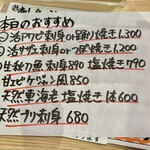 本日のおすすめ
活アワビ刺身or踊り焼き1,300
活サザエ刺身orつぼ焼き1,200
生秋刀魚刺身890 塩焼き790
甘エビケジャン風850
天然車海老塩焼き1本600
天然ブリ刺身680